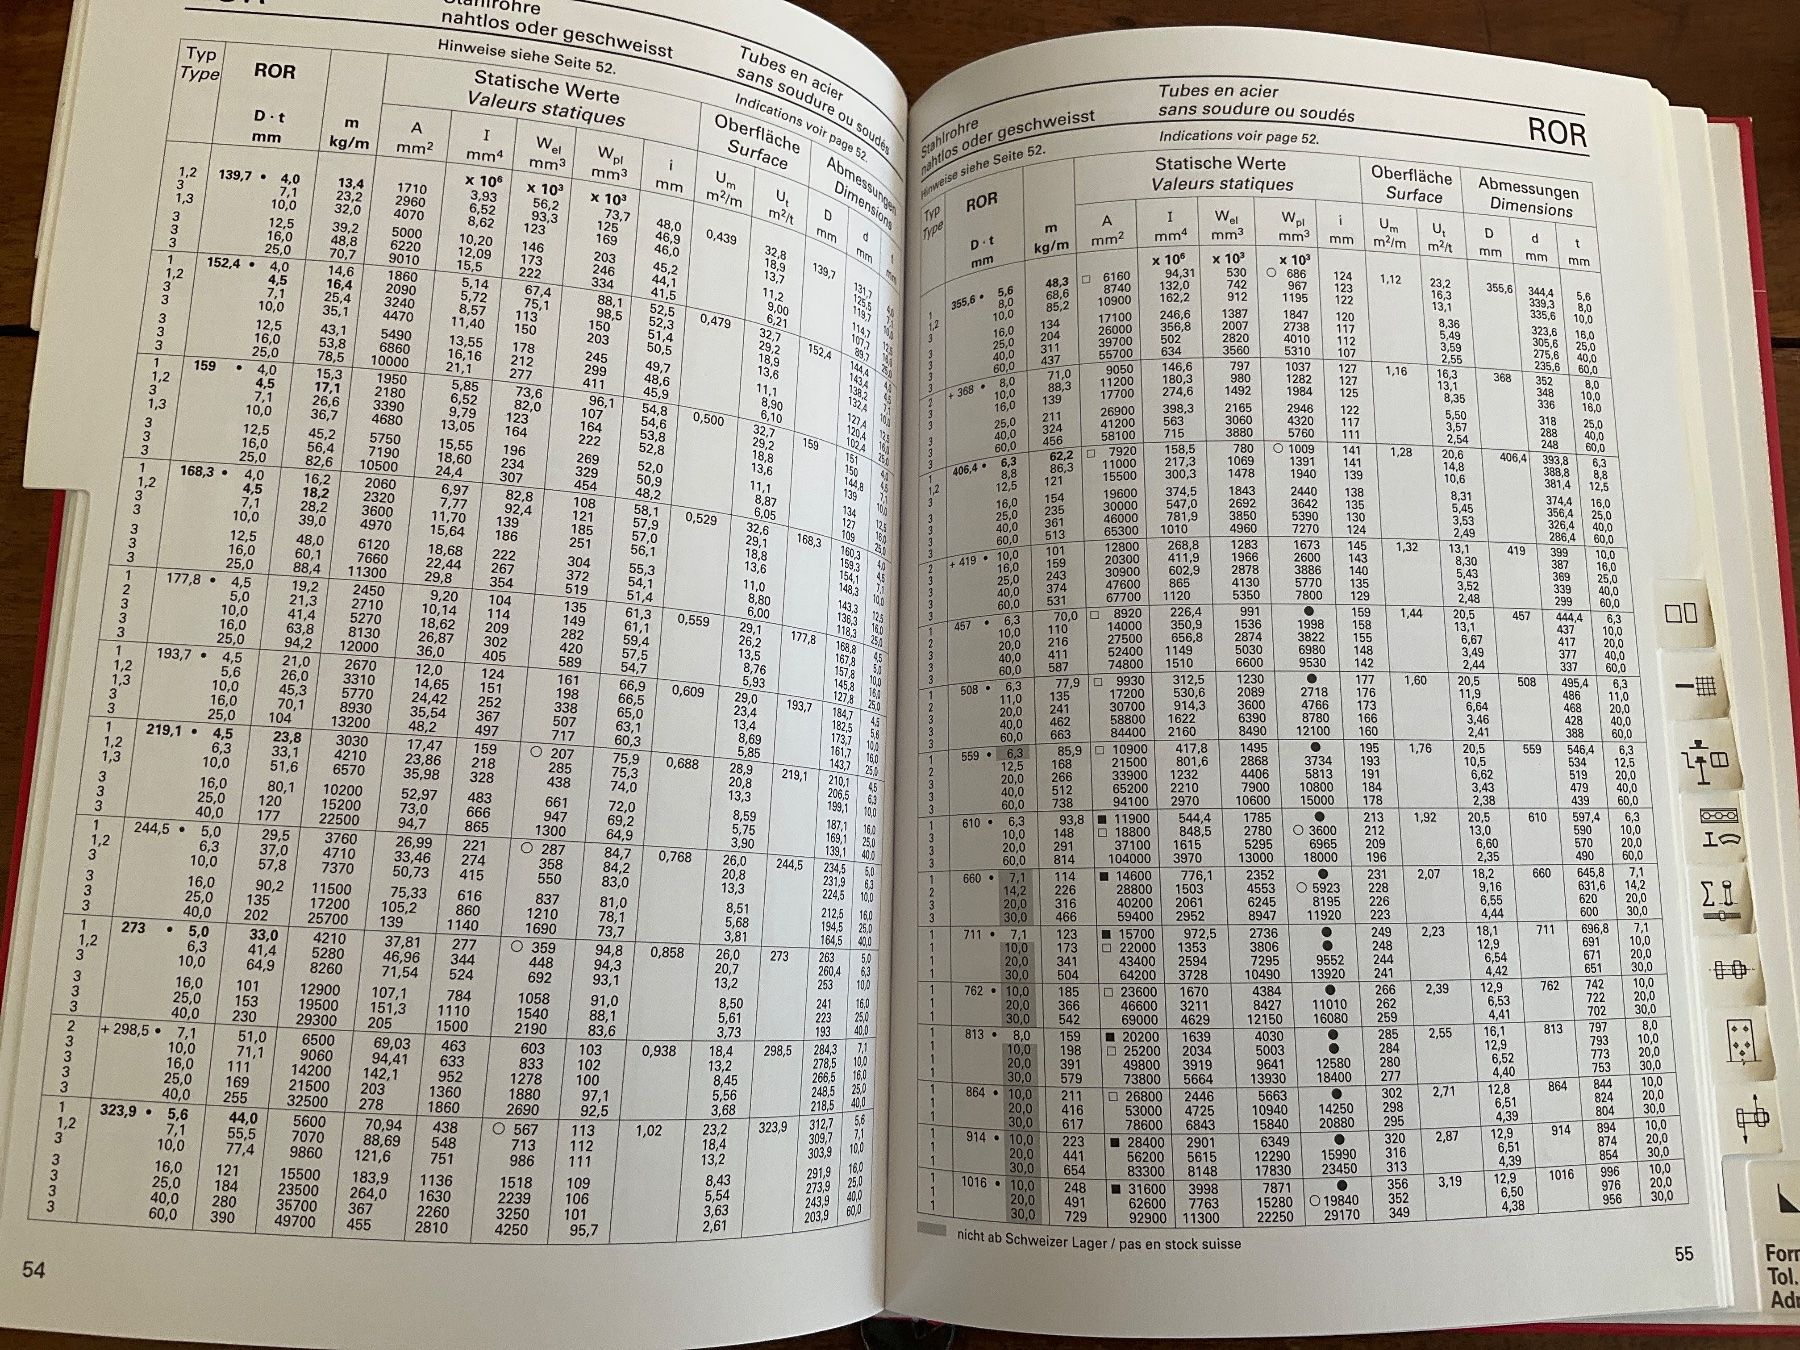 Stahlrohre
nahtlos oder geschweisst
Hinweise siehe Seite 52.
Tubes en acier
sans soudure ou soudés
Indications voir page 52.
Typ Type ROR D · t mm m kg/m
Statische Werte Valeurs statiques
A mm² I mm⁴ Wel mm³ Wpl mm³ i mm
Oberfläche Surface Um m²/m Ut m²/t
Abmessungen Dimensions D mm d mm t mm
x 10⁶ x 10³ x 10³
1,2 139,7 • 4,0 13,4 1710 3,93 56,2 73,7 48,0 0,439 32,8 139,7 131,7 4,0
3 7,1 23,2 2960 6,52 93,3 125 46,9 18,9 125,5 7,1
1,3 10,0 32,0 4070 8,62 123 169 46,0 13,7 119,7 10,0
3 12,5 39,2 5000 10,20 146 203 45,2 11,2 114,7 12,5
3 16,0 48,8 6220 12,09 173 246 44,1 9,00 107,7 16,0
3 25,0 70,7 9010 15,5 222 334 41,5 6,21 89,7 25,0
1 152,4 • 4,0 14,6 1860 5,14 67,4 88,1 52,5 0,479 32,7 152,4 144,4 4,0
1,2 4,5 16,4 2090 5,72 75,1 98,5 52,3 29,2 143,4 4,5
3 7,1 25,4 3240 8,57 113 150 51,4 18,9 138,2 7,1
3 10,0 35,1 4470 11,40 150 203 50,5 13,6 132,4 10,0
3 12,5 43,1 5490 13,55 178 245 49,7 11,1 127,4 12,5
3 16,0 53,8 6860 16,16 212 299 48,6 8,90 120,4 16,0
3 25,0 78,5 10000 21,1 277 411 45,9 6,10 102,4 25,0
1 159 • 4,0 15,3 1950 5,85 73,6 96,1 54,8 0,500 32,7 159 151 4,0
1,2 4,5 17,1 2180 6,52 82,0 107 54,6 29,2 150 4,5
3 7,1 26,6 3390 9,79 123 164 53,8 18,8 144,8 7,1
1,3 10,0 36,7 4680 13,05 164 222 52,8 13,6 139 10,0
3 12,5 45,2 5750 15,55 196 269 52,0 11,1 134 12,5
3 16,0 56,4 7190 18,60 234 329 50,9 8,87 127 16,0
3 25,0 82,6 10500 24,4 307 454 48,2 6,05 109 25,0
1 168,3 • 4,0 16,2 2060 6,97 82,8 108 58,1 0,529 32,6 168,3 160,3 4,0
1,2 4,5 18,2 2320 7,77 92,4 121 57,9 29,1 159,3 4,5
3 7,1 28,2 3600 11,70 139 185 57,0 18,8 154,1 7,1
3 10,0 39,0 4970 15,64 186 251 56,1 13,6 148,3 10,0
3 12,5 48,0 6120 18,68 222 304 55,3 11,0 143,3 12,5
3 16,0 60,1 7660 22,44 267 372 54,1 8,80 136,3 16,0
3 25,0 88,4 11300 29,8 354 519 51,4 6,00 118,3 25,0
1 177,8 • 4,5 19,2 2450 9,20 104 135 61,3 0,559 29,1 177,8 168,8 4,5
2 5,0 21,3 2710 10,14 114 149 61,1 26,2 167,8 5,0
3 10,0 41,4 5270 18,62 209 282 59,4 13,5 157,8 10,0
3 16,0 63,8 8130 26,87 302 420 57,5 8,76 145,8 16,0
3 25,0 94,2 12000 36,0 405 589 54,7 5,93 127,8 25,0
1 193,7 • 4,5 21,0 2670 12,0 124 161 66,9 0,609 29,0 193,7 184,7 4,5
1,2 5,6 26,0 3310 14,65 151 198 66,5 23,4 182,5 5,6
1,3 10,0 45,3 5770 24,42 252 338 65,0 13,4 173,7 10,0
3 16,0 70,1 8930 35,54 367 507 63,1 8,69 161,7 16,0
3 25,0 104 13200 48,2 497 717 60,3 5,85 143,7 25,0
1 219,1 • 4,5 23,8 3030 17,47 159 ○ 207 75,9 0,688 28,9 219,1 210,1 4,5
1,2 6,3 33,1 4210 23,86 218 285 75,3 20,8 206,5 6,3
1,3 10,0 51,6 6570 35,98 328 438 74,0 13,3 199,1 10,0
3 16,0 80,1 10200 52,97 483 661 72,0 8,59 187,1 16,0
3 25,0 120 15200 73,0 666 947 69,2 5,75 169,1 25,0
3 40,0 177 22500 94,7 865 1300 64,9 3,90 139,1 40,0
1 244,5 • 5,0 29,5 3760 26,99 221 ○ 287 84,7 0,768 26,0 244,5 234,5 5,0
1,2 6,3 37,0 4710 33,46 274 358 84,2 20,8 231,9 6,3
3 10,0 57,8 7370 50,73 415 550 83,0 13,3 224,5 10,0
3 16,0 90,2 11500 75,33 616 837 81,0 8,51 212,5 16,0
3 25,0 135 17200 105,2 860 1210 78,1 5,68 194,5 25,0
3 40,0 202 25700 139 1140 1690 73,7 3,81 164,5 40,0
1 273 • 5,0 33,0 4210 37,81 277 ○ 359 94,8 0,858 26,0 273 263 5,0
1,2 6,3 41,4 5280 46,96 344 448 94,3 20,7 260,4 6,3
3 10,0 64,9 8260 71,54 524 692 93,1 13,2 253 10,0
3 16,0 101 12900 107,1 784 1058 91,0 8,50 241 16,0
3 25,0 153 19500 151,3 1110 1540 88,1 5,61 223 25,0
3 40,0 230 29300 205 1500 2190 83,6 3,73 193 40,0
2 + 298,5 • 7,1 51,0 6500 69,03 463 603 103 0,938 18,4 298,5 284,3 7,1
3 10,0 71,1 9060 94,41 633 833 102 13,2 278,5 10,0
3 16,0 111 14200 142,1 952 1278 100 8,45 266,5 16,0
3 25,0 169 21500 203 1360 1880 97,1 5,56 248,5 25,0
3 40,0 255 32500 278 1860 2690 92,5 3,68 218,5 40,0
1 323,9 • 5,6 44,0 5600 70,94 438 ○ 567 113 1,02 23,2 323,9 312,7 5,6
1,2 7,1 55,5 7070 88,69 548 713 112 18,4 309,7 7,1
3 10,0 77,4 9860 121,6 751 986 111 13,2 303,9 10,0
3 16,0 121 15500 183,9 1136 1518 109 8,43 291,9 16,0
3 25,0 184 23500 264,0 1630 2239 106 5,54 273,9 25,0
3 40,0 280 35700 367 2260 3250 101 3,63 243,9 40,0
3 60,0 390 49700 455 2810 4250 95,7 2,61 203,9 60,0
54
Stahlrohre
nahtlos oder geschweisst
Hinweise siehe Seite 52.
Tubes en acier
sans soudure ou soudés
Indications voir page 52.
ROR
Typ Type ROR D · t mm m kg/m
Statische Werte Valeurs statiques
A mm² I mm⁴ Wel mm³ Wpl mm³ i mm
Oberfläche Surface Um m²/m Ut m²/t
Abmessungen Dimensions D mm d mm t mm
x 10⁶ x 10³ x 10³
1 355,6 • 5,6 48,3 □ 6160 94,31 530 ○ 686 124 1,12 23,2 355,6 344,4 5,6
1,2 8,0 68,6 8740 132,0 742 967 123 16,3 339,3 8,0
3 10,0 85,2 10900 162,2 912 1195 122 13,1 335,6 10,0
3 16,0 134 17100 246,6 1387 1847 120 8,36 323,6 16,0
3 25,0 204 26000 356,8 2007 2738 117 5,49 305,6 25,0
3 40,0 311 39700 502 2820 4010 112 3,59 275,6 40,0
3 60,0 437 55700 634 3560 5310 107 2,55 235,6 60,0
2 + 368 • 8,0 71,0 9050 146,6 797 1037 127 1,16 16,3 368 352 8,0
3 10,0 88,3 11200 180,3 980 1282 127 13,1 348 10,0
3 16,0 139 17700 274,6 1492 1984 125 8,35 336 16,0
3 25,0 211 26900 398,3 2165 2946 122 5,50 318 25,0
3 40,0 324 41200 563 3060 4320 117 3,57 288 40,0
3 60,0 456 58100 715 3880 5760 111 2,54 248 60,0
1 406,4 • 6,3 62,2 □ 7920 158,5 780 ○ 1009 141 1,28 20,6 406,4 393,8 6,3
1,2 8,8 86,3 11000 217,3 1069 1391 141 14,8 388,8 8,8
3 12,5 121 15500 300,3 1478 1940 139 10,6 381,4 12,5
3 16,0 154 19600 374,5 1843 2440 138 8,31 374,4 16,0
3 25,0 235 30000 547,0 2692 3642 135 5,45 356,4 25,0
3 40,0 361 46000 781,9 3850 5390 130 3,53 326,4 40,0
3 60,0 513 65300 1010 4960 7270 124 2,49 286,4 60,0
2 + 419 • 10,0 101 12800 268,8 1283 1673 145 1,32 13,1 419 399 10,0
3 16,0 159 20300 411,9 1966 2600 143 8,30 387 16,0
3 25,0 243 30900 602,9 2878 3886 140 5,43 369 25,0
3 40,0 374 47600 865 4130 5770 135 3,52 339 40,0
3 60,0 531 67700 1120 5350 7800 129 2,48 299 60,0
1 457 • 6,3 70,0 □ 8920 226,4 991 ● 159 1,44 20,5 457 444,4 6,3
2 10,0 110 14000 350,9 1536 1998 158 13,1 437 10,0
3 20,0 216 27500 656,8 2874 3822 155 6,67 417 20,0
3 40,0 411 52400 1149 5030 6980 148 3,49 377 40,0
3 60,0 587 74800 1510 6600 9530 142 2,44 337 60,0
1 508 • 6,3 77,9 □ 9930 312,5 1230 ● 177 1,60 20,5 508 495,4 6,3
2 11,0 135 17200 530,6 2089 2718 176 11,9 486 11,0
3 20,0 241 30700 914,3 3600 4766 173 6,64 468 20,0
3 40,0 462 58800 1622 6390 8780 166 3,46 428 40,0
3 60,0 663 84400 2160 8490 12100 160 2,41 388 60,0
1 559 • 6,3 85,9 □ 10900 417,8 1495 ● 195 1,76 20,5 559 546,4 6,3
2 12,5 168 21500 801,6 2868 3734 193 10,5 534 12,5
3 20,0 266 33900 1232 4406 5813 191 6,62 519 20,0
3 40,0 512 65200 2210 7900 10800 184 3,43 479 40,0
3 60,0 738 94100 2970 10600 15000 178 2,38 439 60,0
1 610 • 6,3 93,8 ■ 11900 544,4 1785 ● 213 1,92 20,5 610 597,4 6,3
3 10,0 148 □ 18800 848,5 2780 ○ 3600 212 13,0 590 10,0
3 20,0 291 37100 1615 5295 6965 209 6,60 570 20,0
3 60,0 814 104000 3970 13000 18000 196 2,35 490 60,0
1 660 • 7,1 114 ■ 14600 776,1 2352 ● 231 2,07 18,2 660 645,8 7,1
2 14,2 226 28800 1503 4553 ○ 5923 228 9,16 631,6 14,2
3 20,0 316 40200 2061 6245 8195 226 6,55 620 20,0
3 30,0 466 59400 2952 8947 11920 223 4,44 600 30,0
1 711 • 7,1 123 ■ 15700 972,5 2736 ● 249 2,23 18,1 711 696,8 7,1
1 10,0 173 □ 22000 1353 3806 ● 248 12,9 691 10,0
1 20,0 341 43400 2594 7295 9552 244 6,54 671 20,0
1 30,0 504 64200 3728 10490 13920 241 4,42 651 30,0
1 762 • 10,0 185 □ 23600 1670 4384 ● 266 2,39 12,9 762 742 10,0
1 20,0 366 46600 3211 8427 11010 262 6,53 722 20,0
1 30,0 542 69000 4629 12150 16080 259 4,41 702 30,0
1 813 • 8,0 159 ■ 20200 1639 4030 ● 285 2,55 16,1 813 797 8,0
1 10,0 198 □ 25200 2034 5003 ● 284 12,9 793 10,0
1 20,0 391 49800 3919 9641 12580 280 6,52 773 20,0
1 30,0 579 73800 5664 13930 18400 277 4,40 753 30,0
1 864 • 10,0 211 □ 26800 2446 5663 ● 302 2,71 12,8 864 844 10,0
1 20,0 416 53000 4725 10940 14250 298 6,51 824 20,0
1 30,0 617 78600 6843 15840 20880 295 4,39 804 30,0
1 914 • 10,0 223 ■ 28400 2901 6349 ● 320 2,87 12,9 914 894 10,0
1 20,0 441 56200 5615 12290 15990 316 6,51 874 20,0
1 30,0 654 83300 8148 17830 23450 313 4,39 854 30,0
1 1016 • 10,0 248 ■ 31600 3998 7871 ● 356 3,19 12,9 1016 996 10,0
1 20,0 491 62600 7763 15280 ○ 19840 352 6,50 976 20,0
1 30,0 729 92900 11300 22250 29170 349 4,38 956 30,0
nicht ab Schweizer Lager / pas en stock suisse
55
Tol.